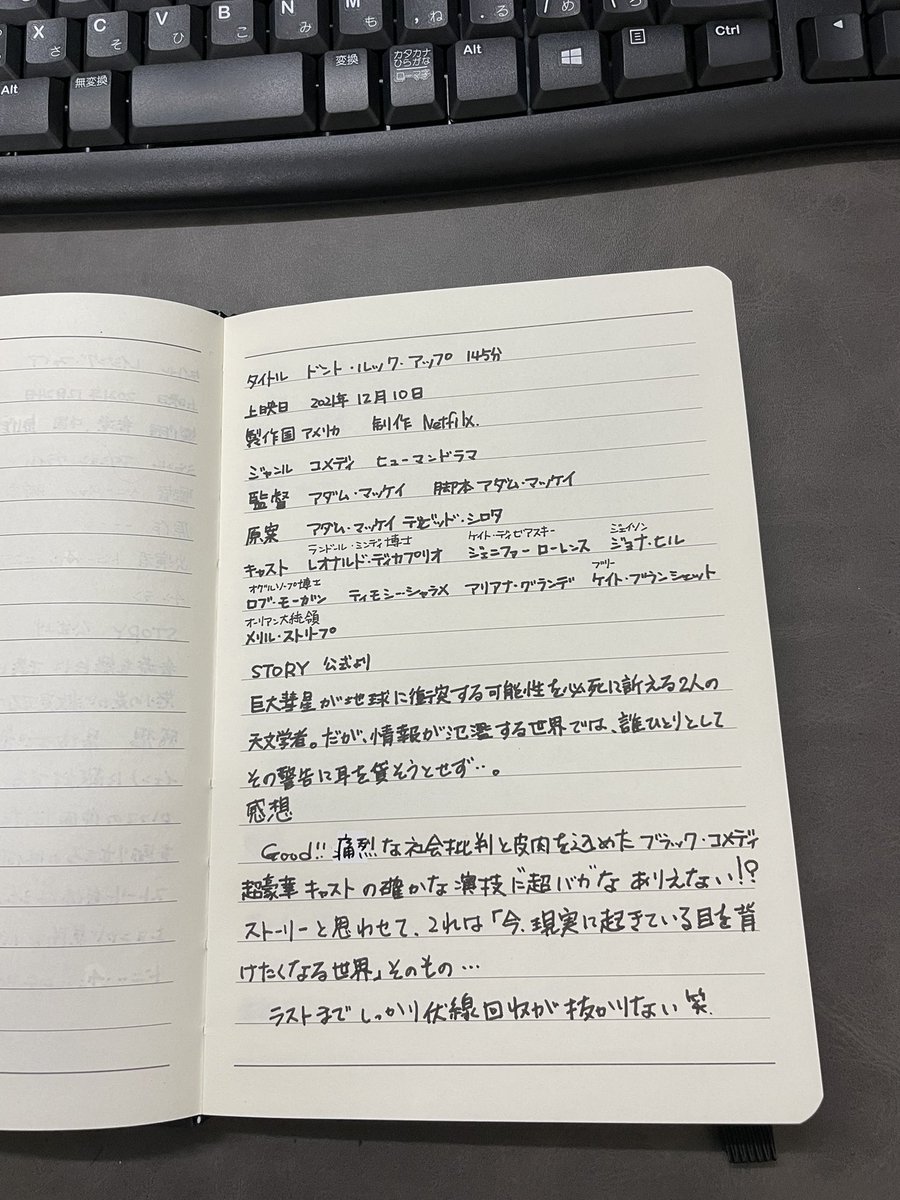 X さ C そ V ひ B こ N み M も , ね . る / め
Alt 無変換 変換 カタカナ ひらがな ローマ字 Alt Ctrl
タイトル ドント・ルック・アップ 145分
上映日 2021年12月10日
製作国 アメリカ 制作 Netfilx.
ジャンル コメディ ヒューマンドラマ
監督 アダム・マッケイ 脚本 アダム・マッケイ
原案 アダム・マッケイ デビッド・シロタ
ランドール・ミンディ博士 ケイト・ディビアスキー ジェイソン
キャスト レオナルド・ディカプリオ ジェニファー ローレンス ジョナ・ヒル
オグルソープ博士 ブリー
ロブ・モーガン ティモシー・シャラメ アリアナ・グランデ ケイト・ブランシェット
オーリアン大統領
メリル・ストリープ
STORY 公式より
巨大彗星が地球に衝突する可能性を必死に訴える2人の
天文学者。だが、情報が氾濫する世界では、誰ひとりとして
その警告に耳を貸そうとせず…。
感想
Good!! 痛烈な社会批判と皮肉を込めたブラック・コメディ
超豪華キャストの確かな演技に超バカなありえない!?
ストーリーと思わせて、これは「今、現実に起きている目を背
けたくなる世界」そのもの…
ラストまでしっかり伏線回収が抜かりない 笑.